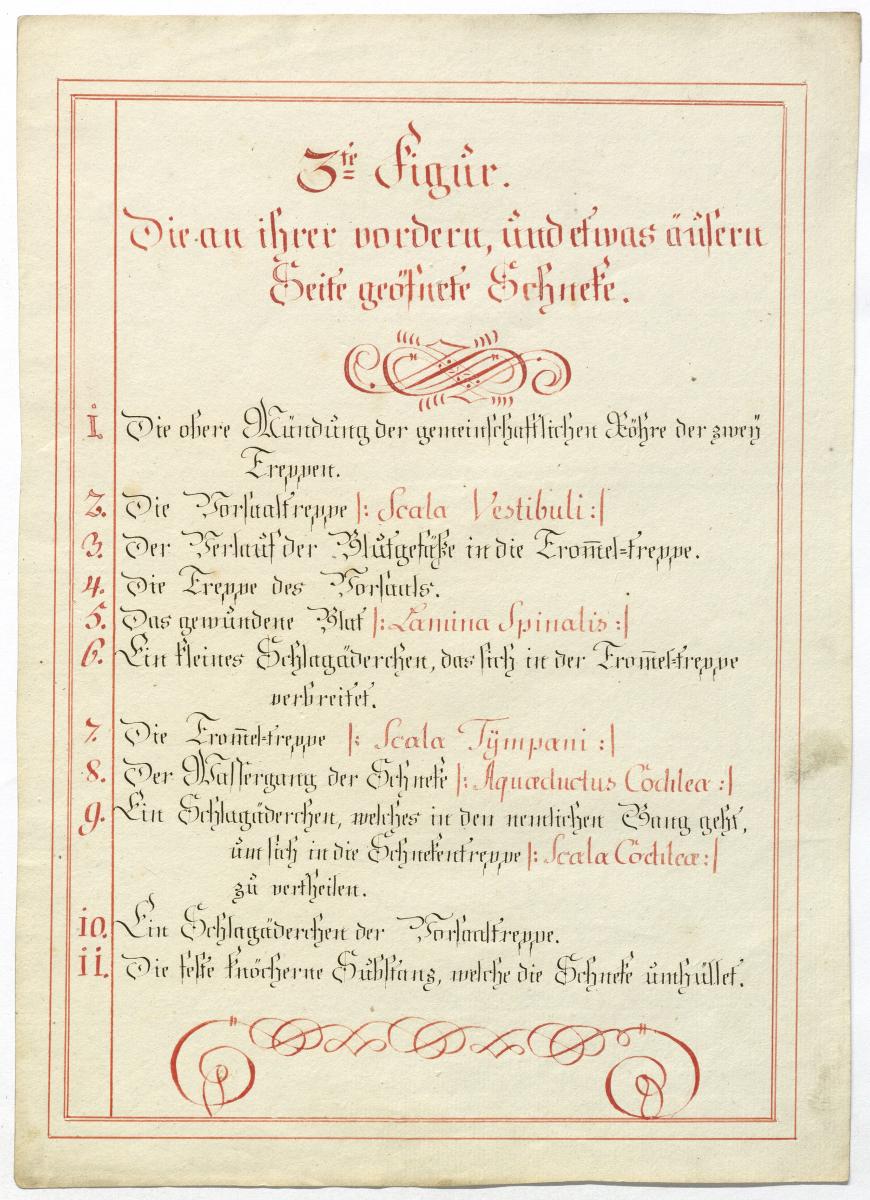 3te Figur.
Die an ihrer vordern, und etwas äusern
Seite geöfnete Schneke.
1. Die obere Mündung der gemeinschaftlichen Röhre der zweÿ
Treppen.
2. Die Vorsaaltreppe |: Scala Vestibuli :|
3. Der Verlauf der Blutgefäße in die Trom̄el=treppe.
4. Die Treppe des Vorsaals.
5. Das gewundene Blat |: Lamina Spinalis :|
6. Ein kleines Schlagäderchen, das sich in der Trom̄el=treppe
verbreitet.
7. Die Trom̄el=treppe |: Scala Tÿmpani :|
8. Der Wassergang der Schneke |: Aquæductus Cöchleæ :|
9. Ein Schlagäderchen, welches in den nemlichen Gang geht,
um sich in die Schnekentreppe |: Scala Cöchleæ :|
zu vertheilen.
10. Ein Schlagäderchen der Vorsaaltreppe.
11. Die feste knöcherne Substanz, welche die Schneke umhüllet.